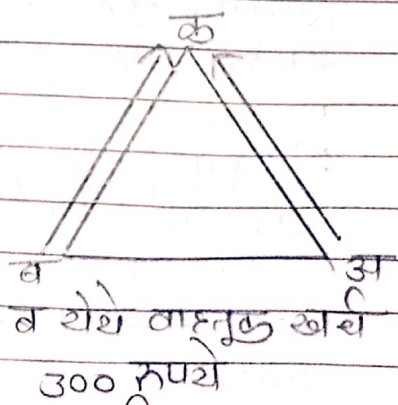 क
ब अ
ब येथे वाहतुक खर्च
300 रुपये